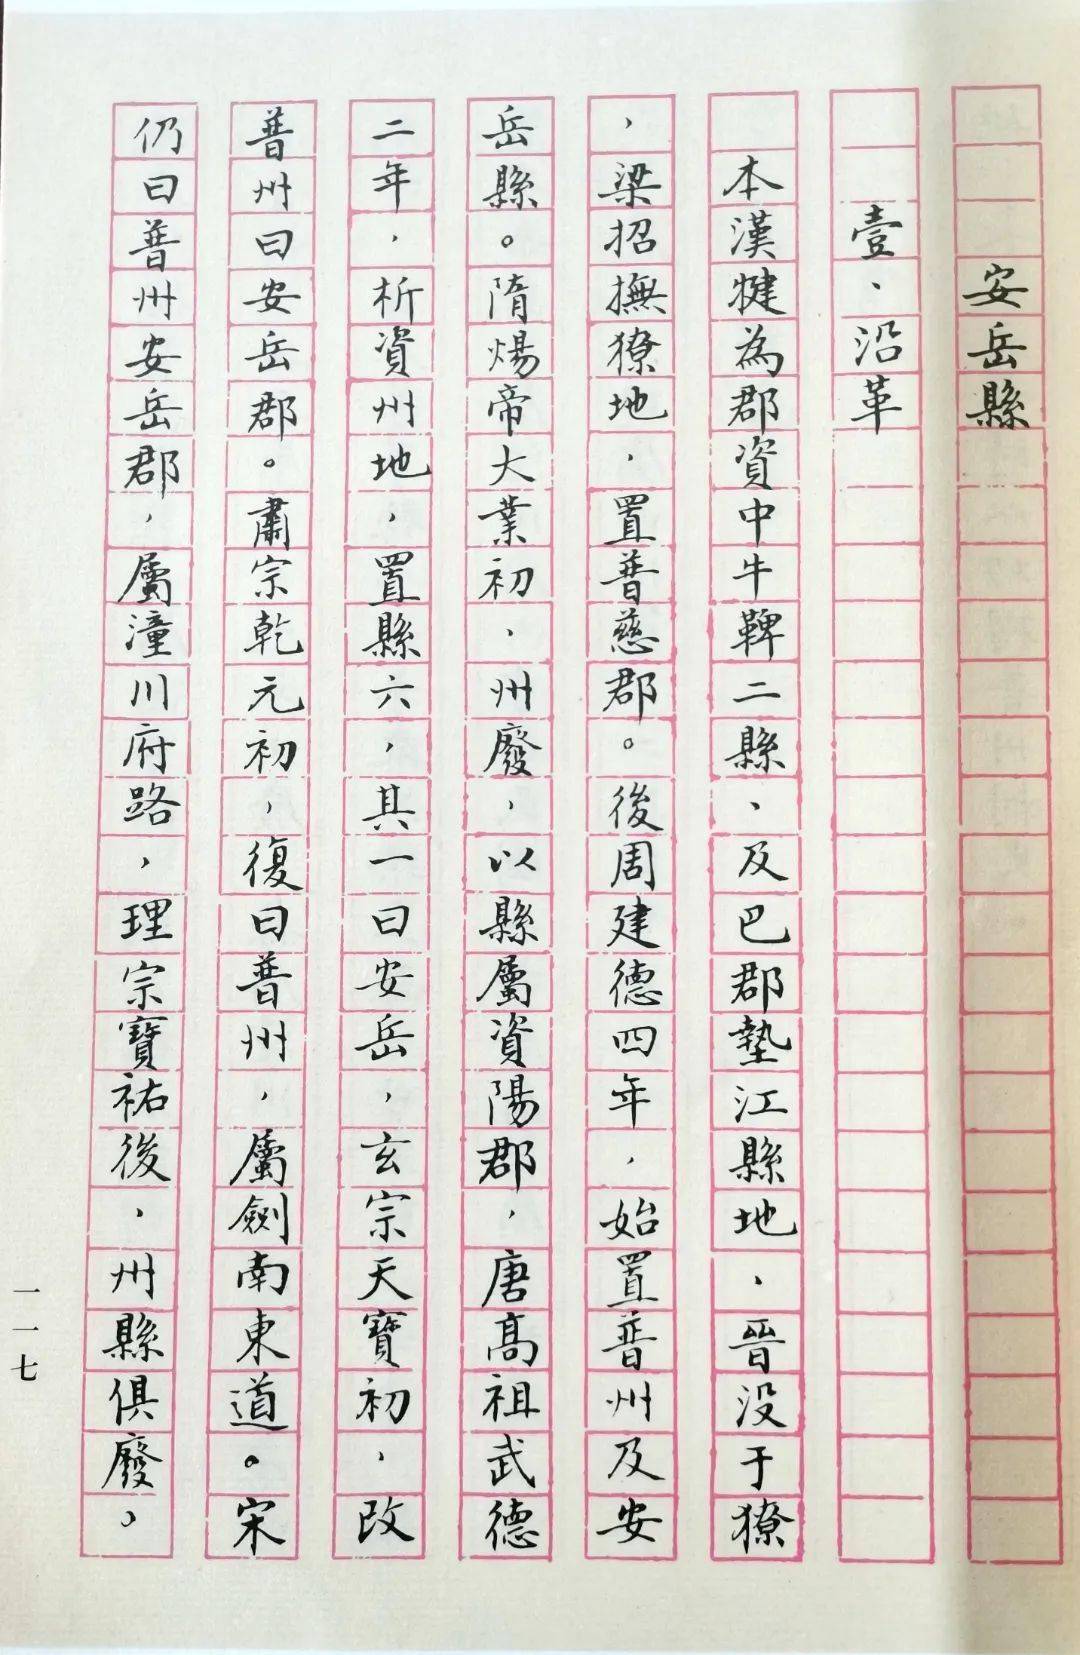 安岳縣
壹、沿革
本漢犍為郡資中牛鞞二縣、及巴郡墊江縣地、晉没于獠
，梁招撫獠地，置普慈郡。後周建德四年，始置普州及安
岳縣。隋煬帝大業初、州廢，以縣屬資陽郡，唐高祖武德
二年，析資州地，置縣六，其一曰安岳，玄宗天寶初，改
普州曰安岳郡。肅宗乾元初，復曰普州，屬劍南東道。宋
仍曰普州安岳郡，屬潼川府路，理宗寶祐後，州縣俱廢。
一一七